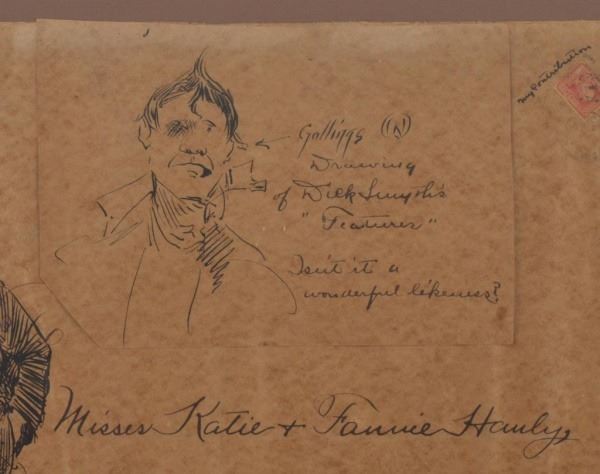 My Contribution
Gallings
Drawing
of Dick Smyth's
"Features"
Isn't it a
wonderful likeness?
Misses Katie + Fannie Hanly,